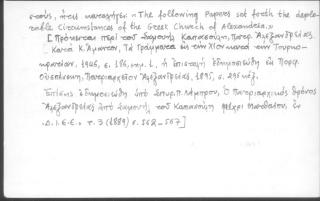 στούς, ἥτις καταχήγει: «The following Papers set forth the deplo-
rable Circumstances of the Greek Church of Alexandria.»
[Πρόκειται περί τοῦ Σαμουήλ Καπασούλη, Πατρ. Ἀλεξανδρείας.
Κατά Κ. Ἄμαντον, Τά Γράμματα εἰς τήν Χίον κατά τήν Τουρκο-
κρατίαν, 1946, σ. 186, σημ. 1, ἡ ἐπιστολή ἐδημοσιεύθη ἐν Πορφ.
Οὐσπένσκη, Πατριαρχεῖον Ἀλεξανδρείας, 1898, σ. κἑξ.
Ἐπίσης ἐδημοσιεύθη ὑπό Σπυρ. Π. Λάμπρου, Ὁ Πατριαρχικός θρόνος
Ἀλεξανδρείας ἀπό Σαμουήλ τοῦ Καπασούλη μέχρι Ματθαίου, ἐν
Δ.Ι.Ε.Ε., τ. 3 (1889) σ. 562-567]